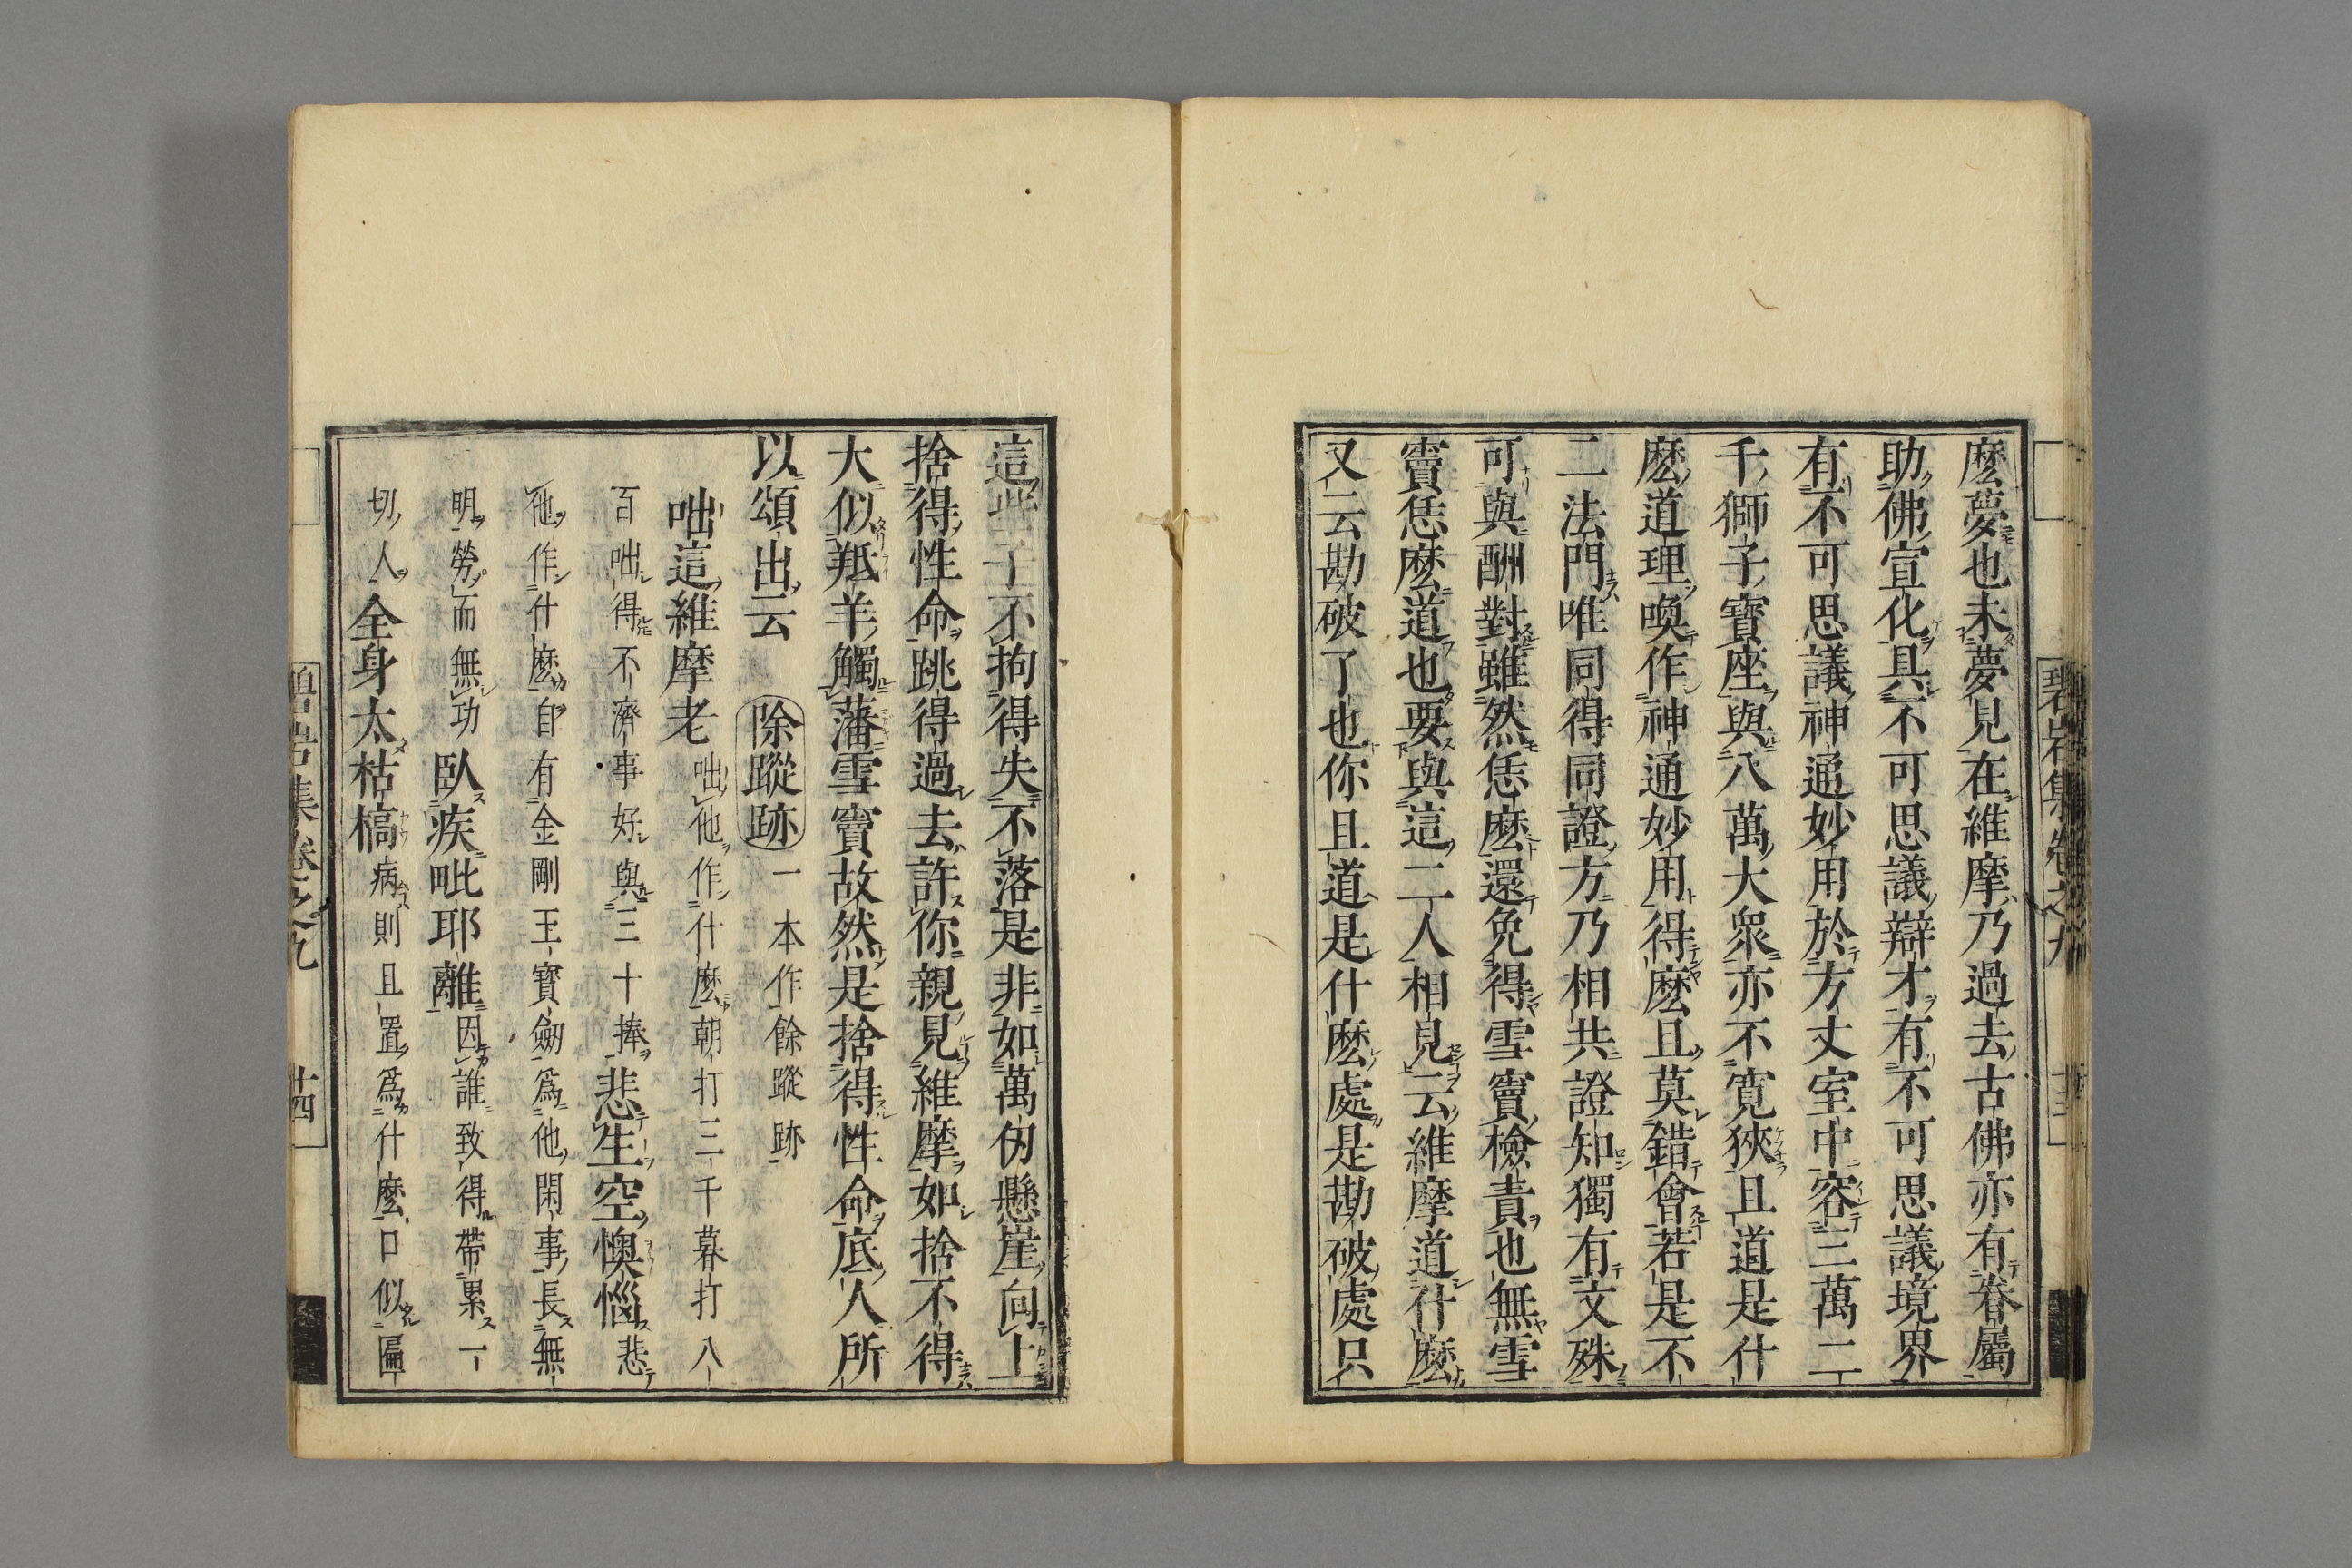 麽夢也未夢見在維摩乃過去古佛亦有眷屬
助佛宣化具不可思議辯才有不可思議境界
有不可思議神通妙用於方丈室中容三萬二
千獅子寶座與八萬大衆亦不寬狹且道是什
麽道理喚作神通妙用得麽且莫錯會若是不
二法門唯同得同證方乃相共證知獨有文殊
可與酬對雖然恁麽還免得雪竇檢責也無雪
竇恁麽道也要與這二人相見云維摩道什麽
又云勘破了也你且道是什麽處是勘破處只
這些子不拘得失不落是非如萬仞懸崖向上
捨得性命跳得過去許你親見維摩如捨不得
大似羝羊觸藩雪竇故然是捨得性命底人所
以頌出云 除蹤跡 一本作餘蹤跡
咄這維摩老 咄他作什麽朝打三千暮打八
百咄得不濟事好與三十捧 悲生空懊惱 悲
他作什麽自有金剛王寶劒爲他閑事長無
明勞而無功 臥疾毗耶離 因誰致得帶累一
切人 全身太枯槁 病則且置爲什麽口似匾
碧岩集卷之九
十四